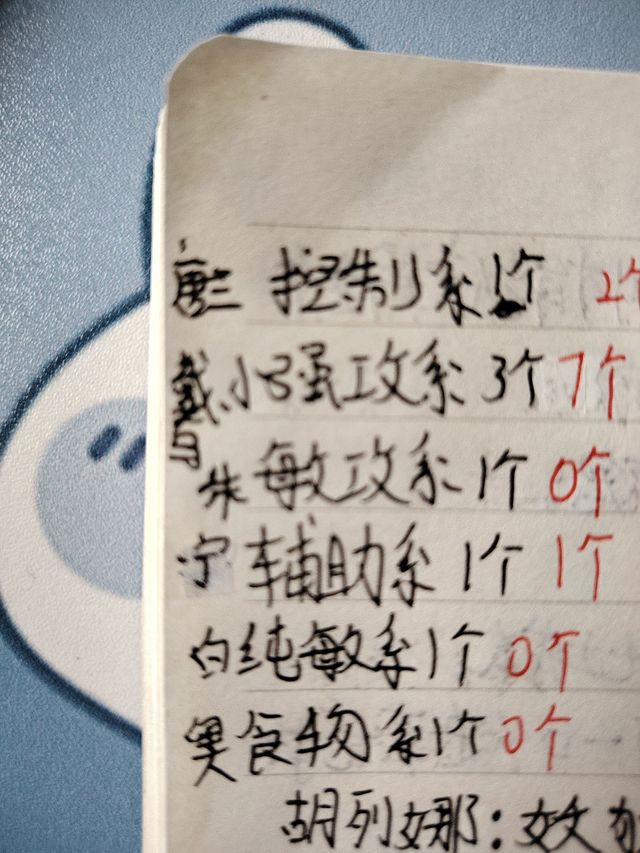 唐三 控制系 1个 2个
戴、小 强攻系 3个 7个
马
朱 敏攻系 1个 0个
宁 辅助系 1个 1个
白 纯敏系 1个 0个
奥 食物系 1个 0个
胡列娜：